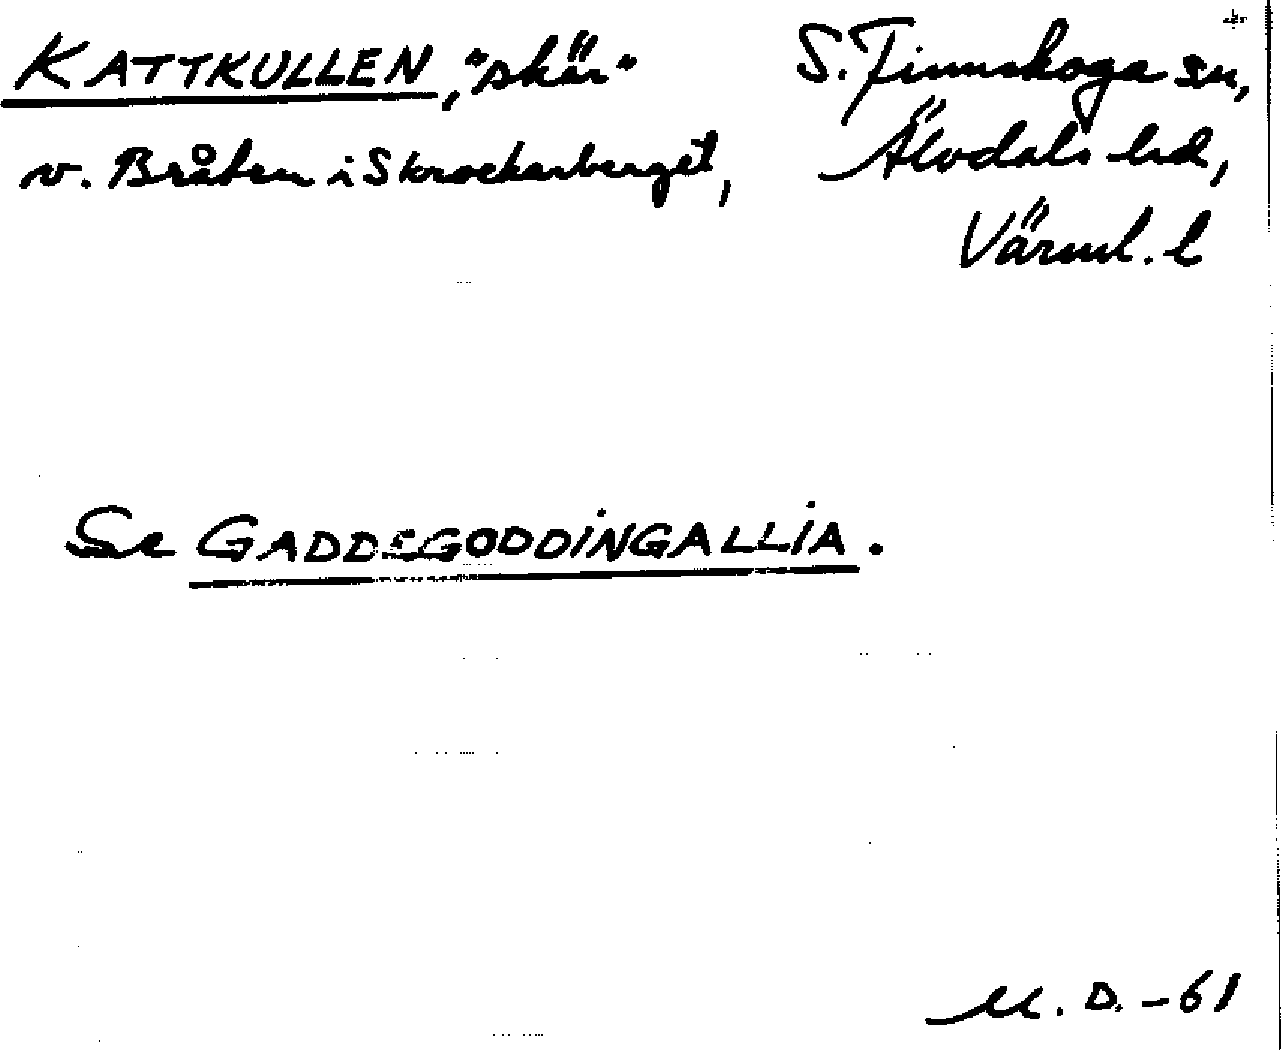 KATTKULLEN, "skär" S. Finnskoga sn,
v. Bråten i Skrockarberget, Älvdals hd,
Värml. l
Se GADDEGODDINGALLIA.
M. D. -61